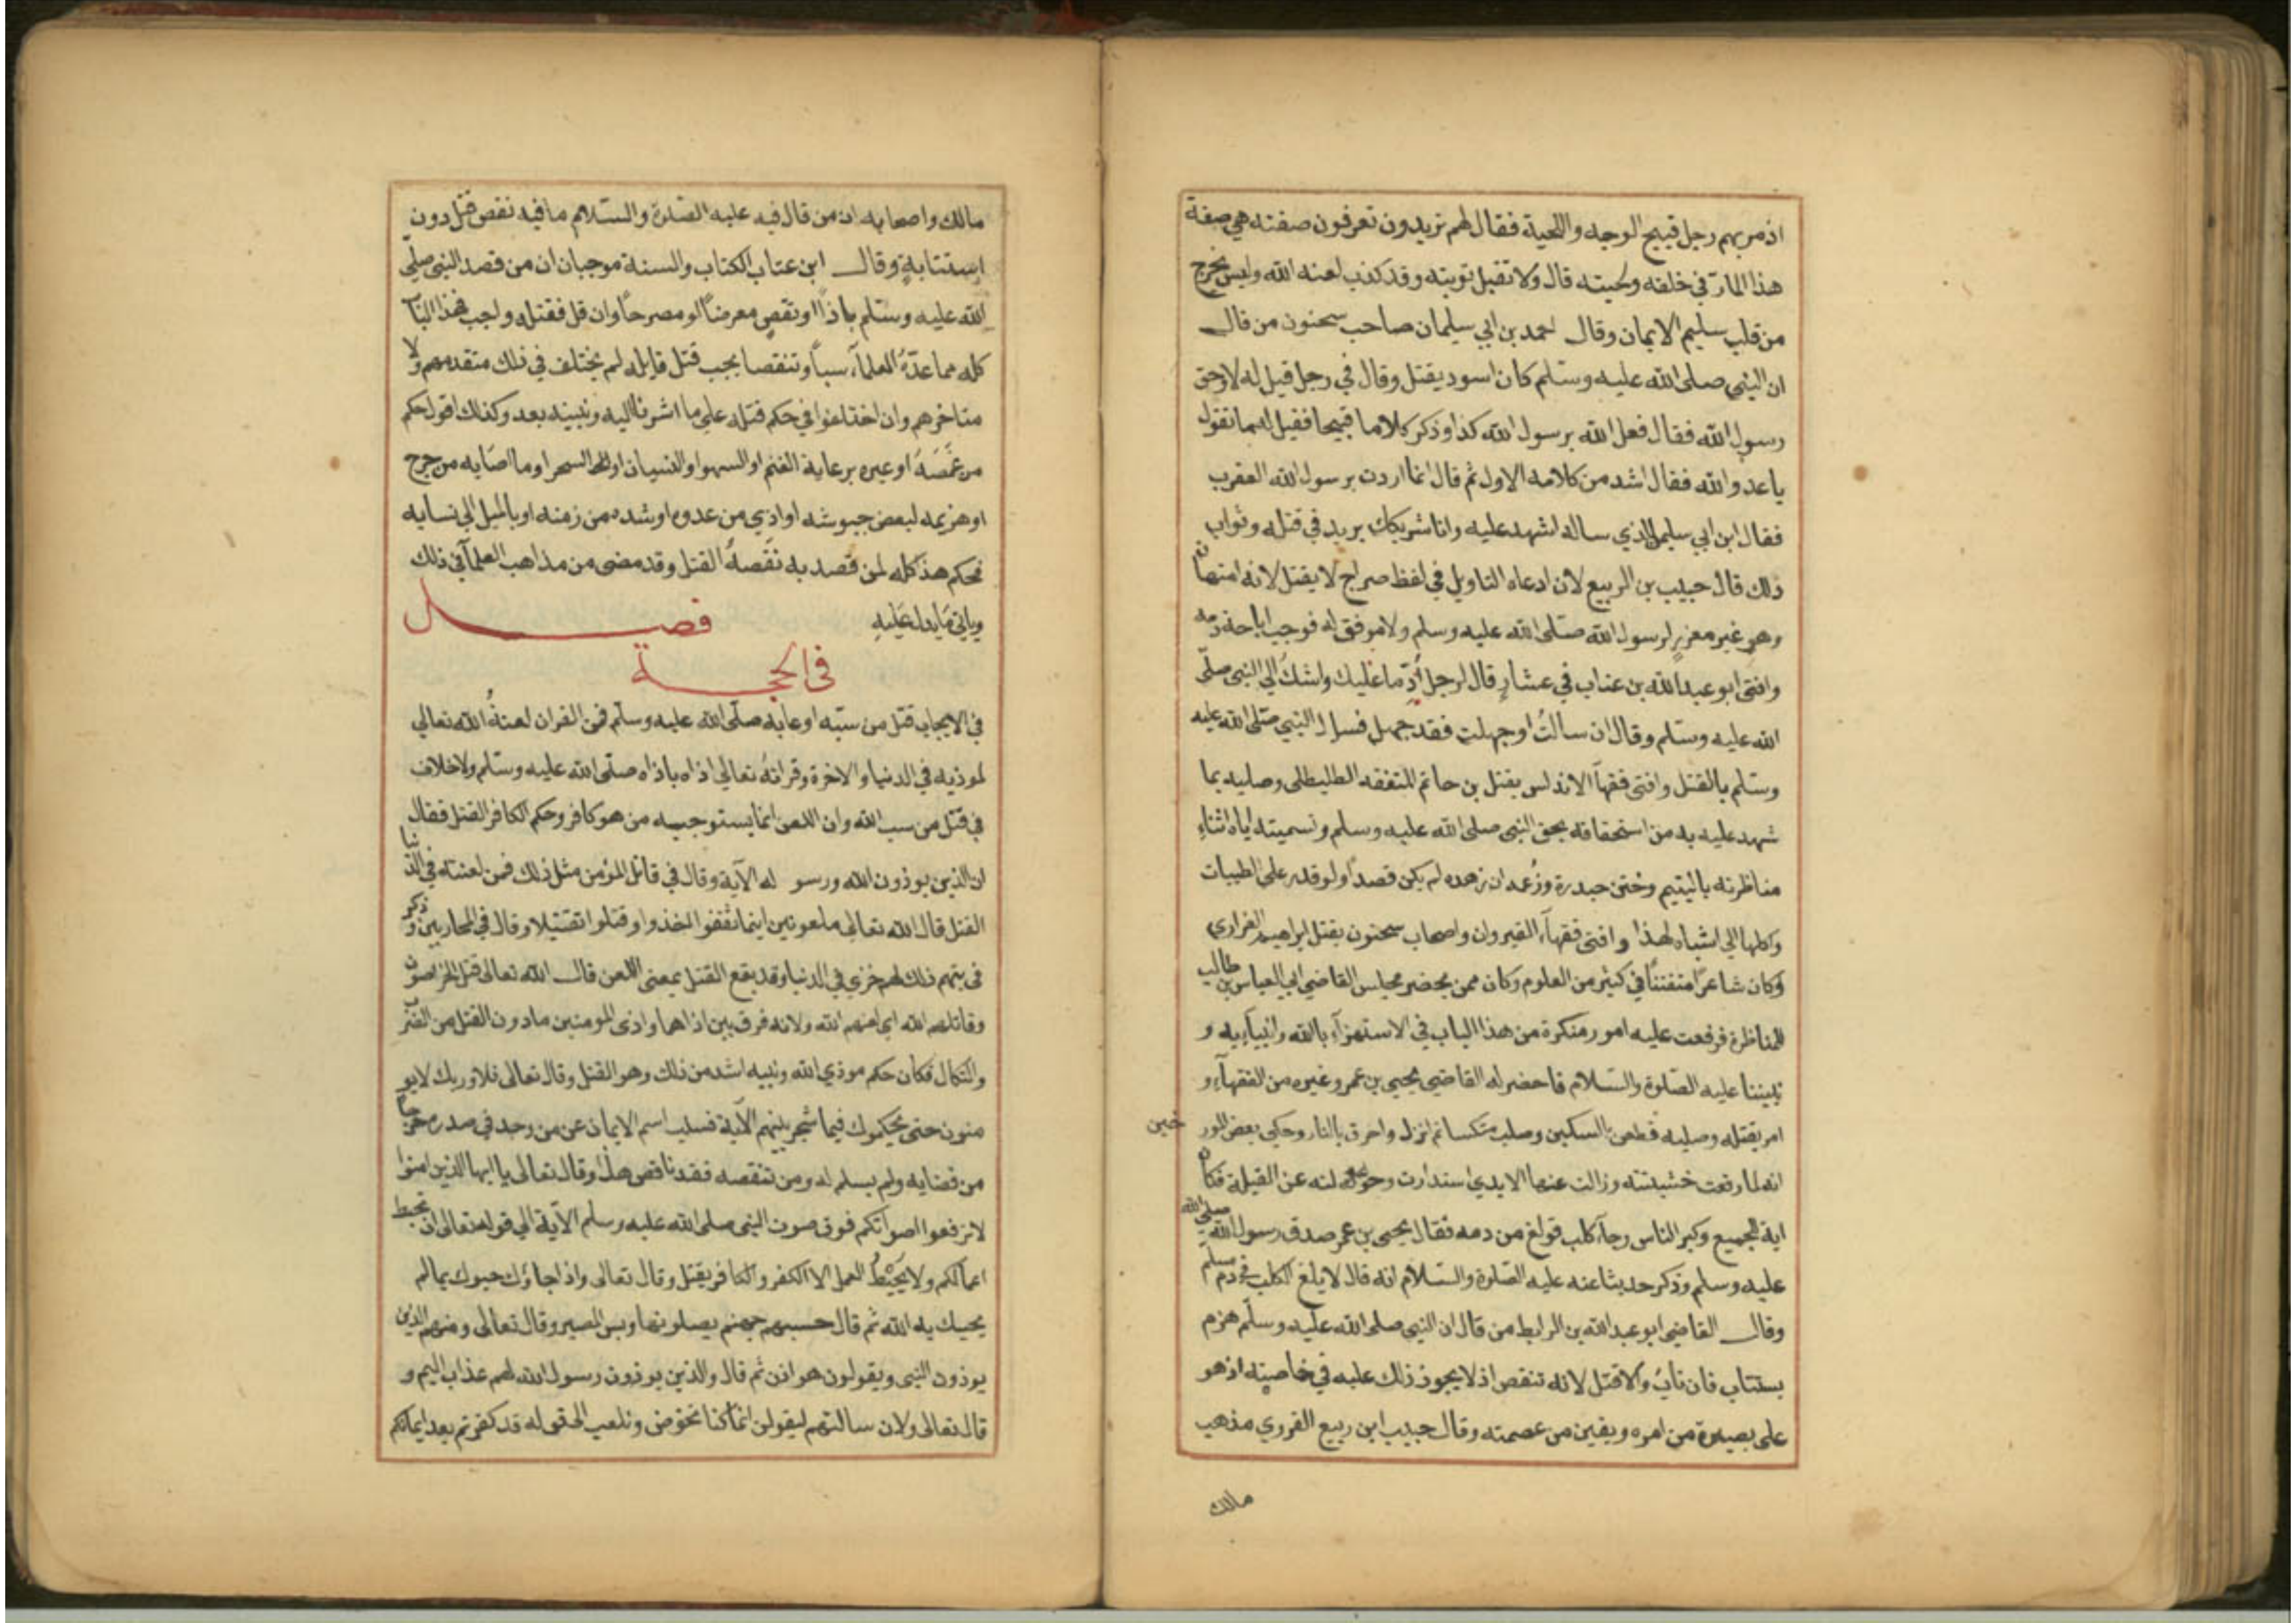 اذ مر بهم رجل قبيح الوجه واللحية فقال لهم تريدون تعرفون صفته هي صفة
هذا المار في خلقه ولحيته قال ولا تقبل توبته وقد كذب لعنه الله وليس يخرج
من قلب سليم الايمان وقال احمد بن ابي سليمان صاحب سحنون من قال
ان النبي صلى الله عليه وسلم كان اسود يقتل وقال في رجل قيل له لا وحق
رسول الله فقال فعل الله برسول الله كذا وذكر كلاما قبيحا فقيل له ما تقول
يا عدو الله فقال اشد من كلامه الاول ثم قال انما اردت برسول الله العقرب
فقال ابن ابي سليمن للذي ساله اشهد عليه وانا شريكك يريد في قتله وثواب
ذلك قال حبيب بن الربيع لان ادعاه التاويل في لفظ صراح لا يقتل لانه امتهان
وهو غير معزر لرسول الله صلى الله عليه وسلم ولا موقق له فوجب اباحة دمه
وافتى ابو عبد الله بن عتاب في عشار قال لرجل أدّ ما عليك واشك الي النبي صلى
الله عليه وسلم وقال ان سالت او جهلت فقد جهل فسال النبي صلى الله عليه
وسلم بالقتل وافتى فقهآ الاندلس بقتل بن حاتم المتفقه الطليطلي وصلبه بما
شهد عليه به من استخفافه بحق النبي صلى الله عليه وسلم وتسميته اياه اثناء
مناظرته باليتيم وختن حيدرة وزعمه ان زهده لم يكن قصدا ولو قدر على الطيبات
واكلها الي اشباه لهذا وافتى فقهآء القيروان واصحاب سحنون بقتل ابراهيم الفزاري
وكان شاعرا متفننا في كثير من العلوم وكان ممن يحضر مجلس القاضي ابي العباس بن طالب
للمناظرة فرفعت عليه امور منكرة من هذا الباب في الاستهزآء بالله وانبيآيه و
نبيننا عليه الصلوة والسلام فاحضر له القاضي يحيى بن عمر وغيره من الفقهآء و
امر بقتله وصلبه فطعن بالسكين وصلب منكسا ثم انزل واحرق بالنار وحكي بعض المور
خين
انه لما رفعت خشبتته وزالت عنها الايدي استدارت وحولته عن القبلة فكان
اية للجميع وكبر الناس وجآء كلب فولغ من دمه فقال يحيى بن عمر صدق رسول الله صلى الله
عليه وسلم وذكر حديثا عنه عليه الصلوة والسلام انه قال لا يلغ الكلب في دم مسلم
وقال القاضي ابو عبد الله بن المرابط من قال ان النبي صلى الله عليه وسلم هزم
يستتاب فان تاب والا قتل لانه تنقص اذ لا يجوز ذلك عليه في خاصيته اذ هو
على بصيرة من امره ويقين من عصمته وقال حبيب ابن ربيع القروي مذهب
مالك
مالك واصحابه ان من قال فيه عليه الصلوة والسلام ما فيه نقص قتل دون
استتابة وقال ابن عتاب الكتاب والسنة موجبان ان من قصد النبي صلى
الله عليه وسلم باذا او نقص معرضا او مصرحا وان قل فقتله واجب فهذا البآ
كله مما عدّه العلمآء سبا وتنقصا يجب قتل قايله لم يختلف في ذلك متقدمهم ولا
متاخرهم وان اختلفوا في حكم قتله على ما اشرنا اليه ونبينه بعد وكذلك اقول حكم
من غمصه او عيره برعاية الغنم او السهو او النسيان او السحر او ما اصابه من جرح
او هزيمه لبعض جيوشه او اذي من عدوه او شده من زمنه او بالميل الي نسايه
فحكم هذا كله لمن قصد به نقصه القتل وقد مضى من مذاهب العلمآ في ذلك
وياتي ما يدل عليه فصــل
في الحجــة
في الايجاب قتل من سبه او عابه صلى الله عليه وسلم فمن القران لعنه الله تعالي
لموذيه في الدنيا والاخرة وقرانه تعالي اذاه باذاه صلى الله عليه وسلم ولا خلاف
في قتل من سب الله وان اللعن انما يستوجبه من هو كافر وحكم الكافر القتل فقال
ان الذين يوذون الله ورسو له الآية وقال في قاتل المؤمن مثل ذلك فمن لعنته في الدنيا
القتل قال الله تعالى ملعونين اينما ثقفوا اخذوا وقتلوا تقتيلا وقال في المحاربين وذكر
ذلك لهم خزي في الدنيا وقد يقع القتل بمعنى اللعن قال الله تعالى قتل الخراصون
وقاتلهم الله اي لعنهم الله ولانه فرق بين اذاهما واذى المومنين ما دون القتل من الضر
والنكال فكان حكم موذي الله ونبيه اشد من ذلك وهو القتل وقال تعالى فلا وربك لا يو
منون حتى يحكموك فيما شجر بينهم الآية فسلب اسم الايمان عن من وجد في صدره حرجا
من قضايه ولم يسلم له ومن تنقصه فقد ناقض هذا وقال تعالى يا ايها الذين امنوا
لا ترفعوا اصواتكم فوق صوت النبي صلى الله عليه وسلم الآية الي قوله تعالى ان تحبط
اعمالكم ولا يحبط العمل الا الكفر والكافر يقتل وقال تعالى واذا جاؤك حيوك بما لم
يحيك به الله ثم قال حسبهم جهنم يصلونها وبس المصير وقال تعالى ومنهم الذين
يوذون النبي ويقولون هو اذن ثم قال والذين يوذون رسول الله لهم عذاب اليم و
قال تعالى ولان سالتهم ليقولن انما كنا نخوض ونلعب الى قوله قد كفرتم بعد ايمانكم